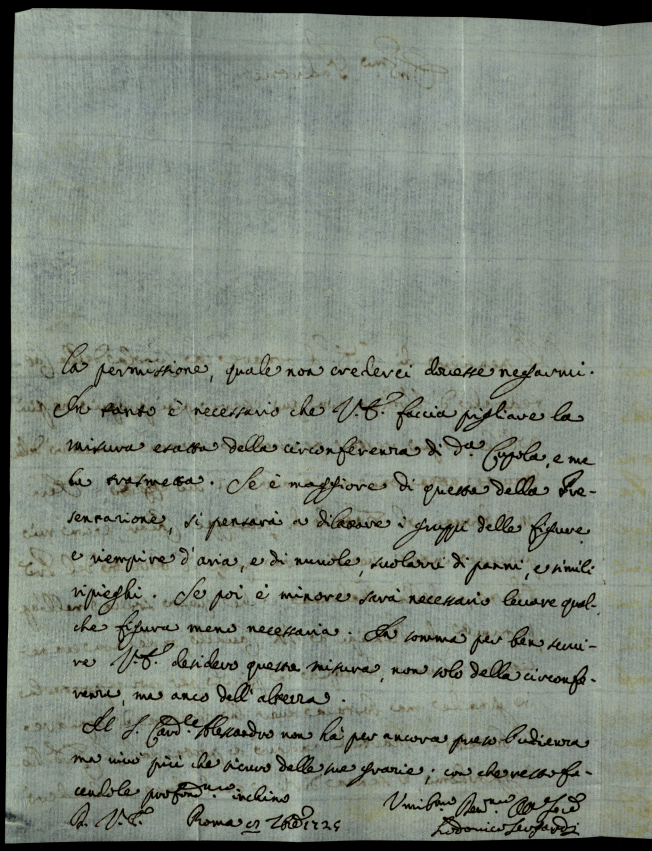 la permissione, quale non crederei dovesse negarmi.
In tanto è necessario che V.E. faccia pigliare la
misura esatta della circonferenza di d.a Cupola, e me
la trasmetta. Se è maggiore di questa della Pre-
sentazione, si pensarà a dilatare i gruppi delle figure
e riempire d'aria, e di nuvole, svolazzi di panni, e simili
ripieghi. Se poi è minore sarà necessario levare qual-
che figura meno necessaria. In somma per ben servi-
re V.E. desidero questa misura, non solo della circonfe-
renza, ma anco dell'altezza.
Il S. Card.le Alessandro non hà per ancora preso l'udienza
ma vivo più che sicuro delle sue grazie; con che resto fa-
cendole profon.mo inchino
D. V.E. Roma 7bre 1725
Lodovico Sergardi